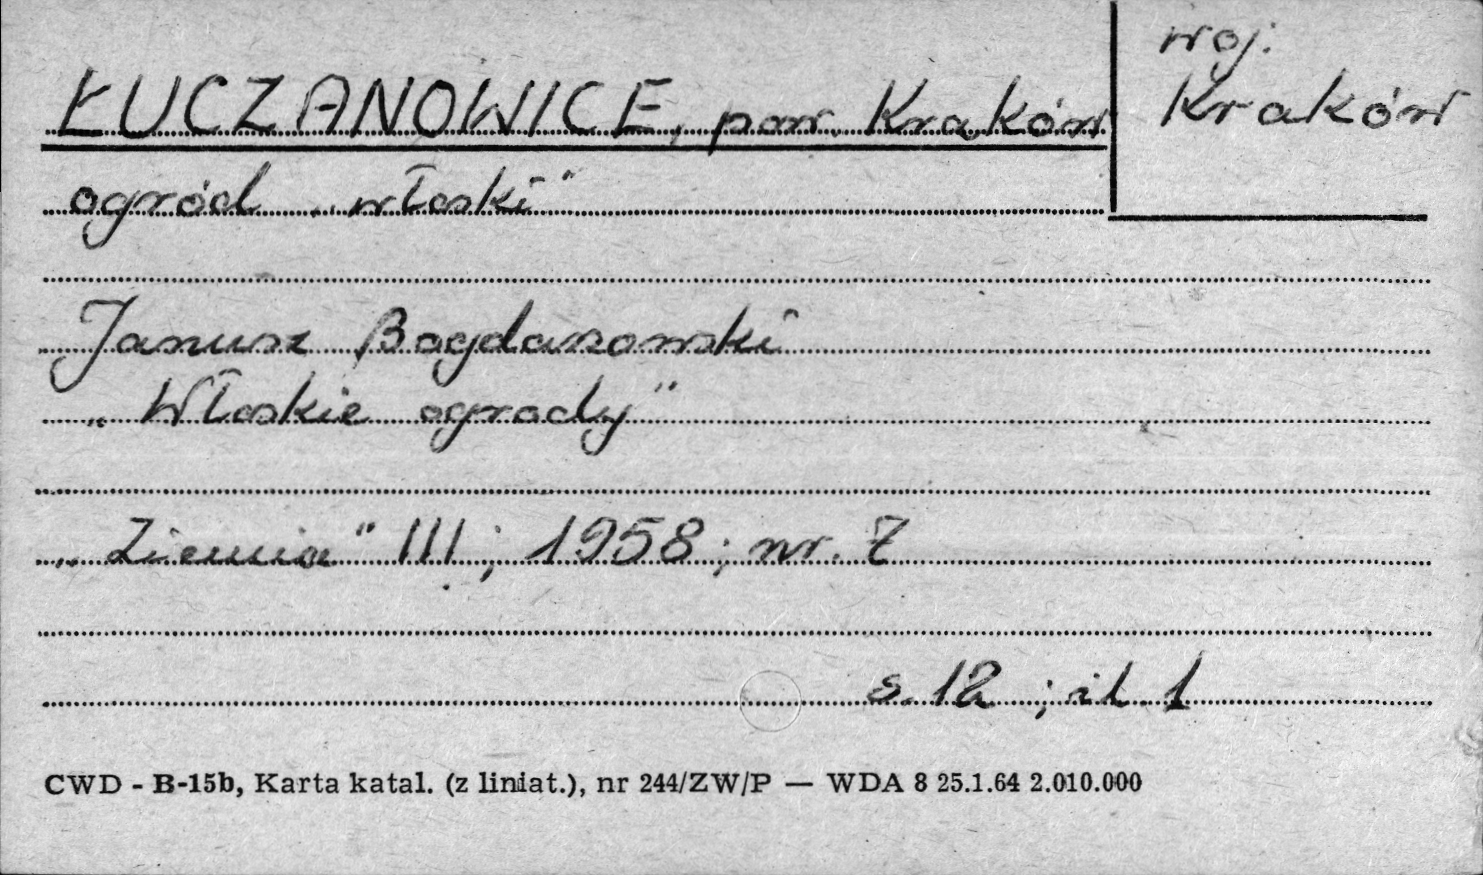 woj.
ŁUCZANOWICE, pow. Kraków
Kraków
ogród „włoski”
Janusz Bogdanowski
„Włoskie ogrody”
„Ziemia” III; 1958; nr. 7
s. 12; il. 1
CWD - B-15b, Karta katal. (z liniat.), nr 244/ZW/P — WDA 8 25.1.64 2.010.000